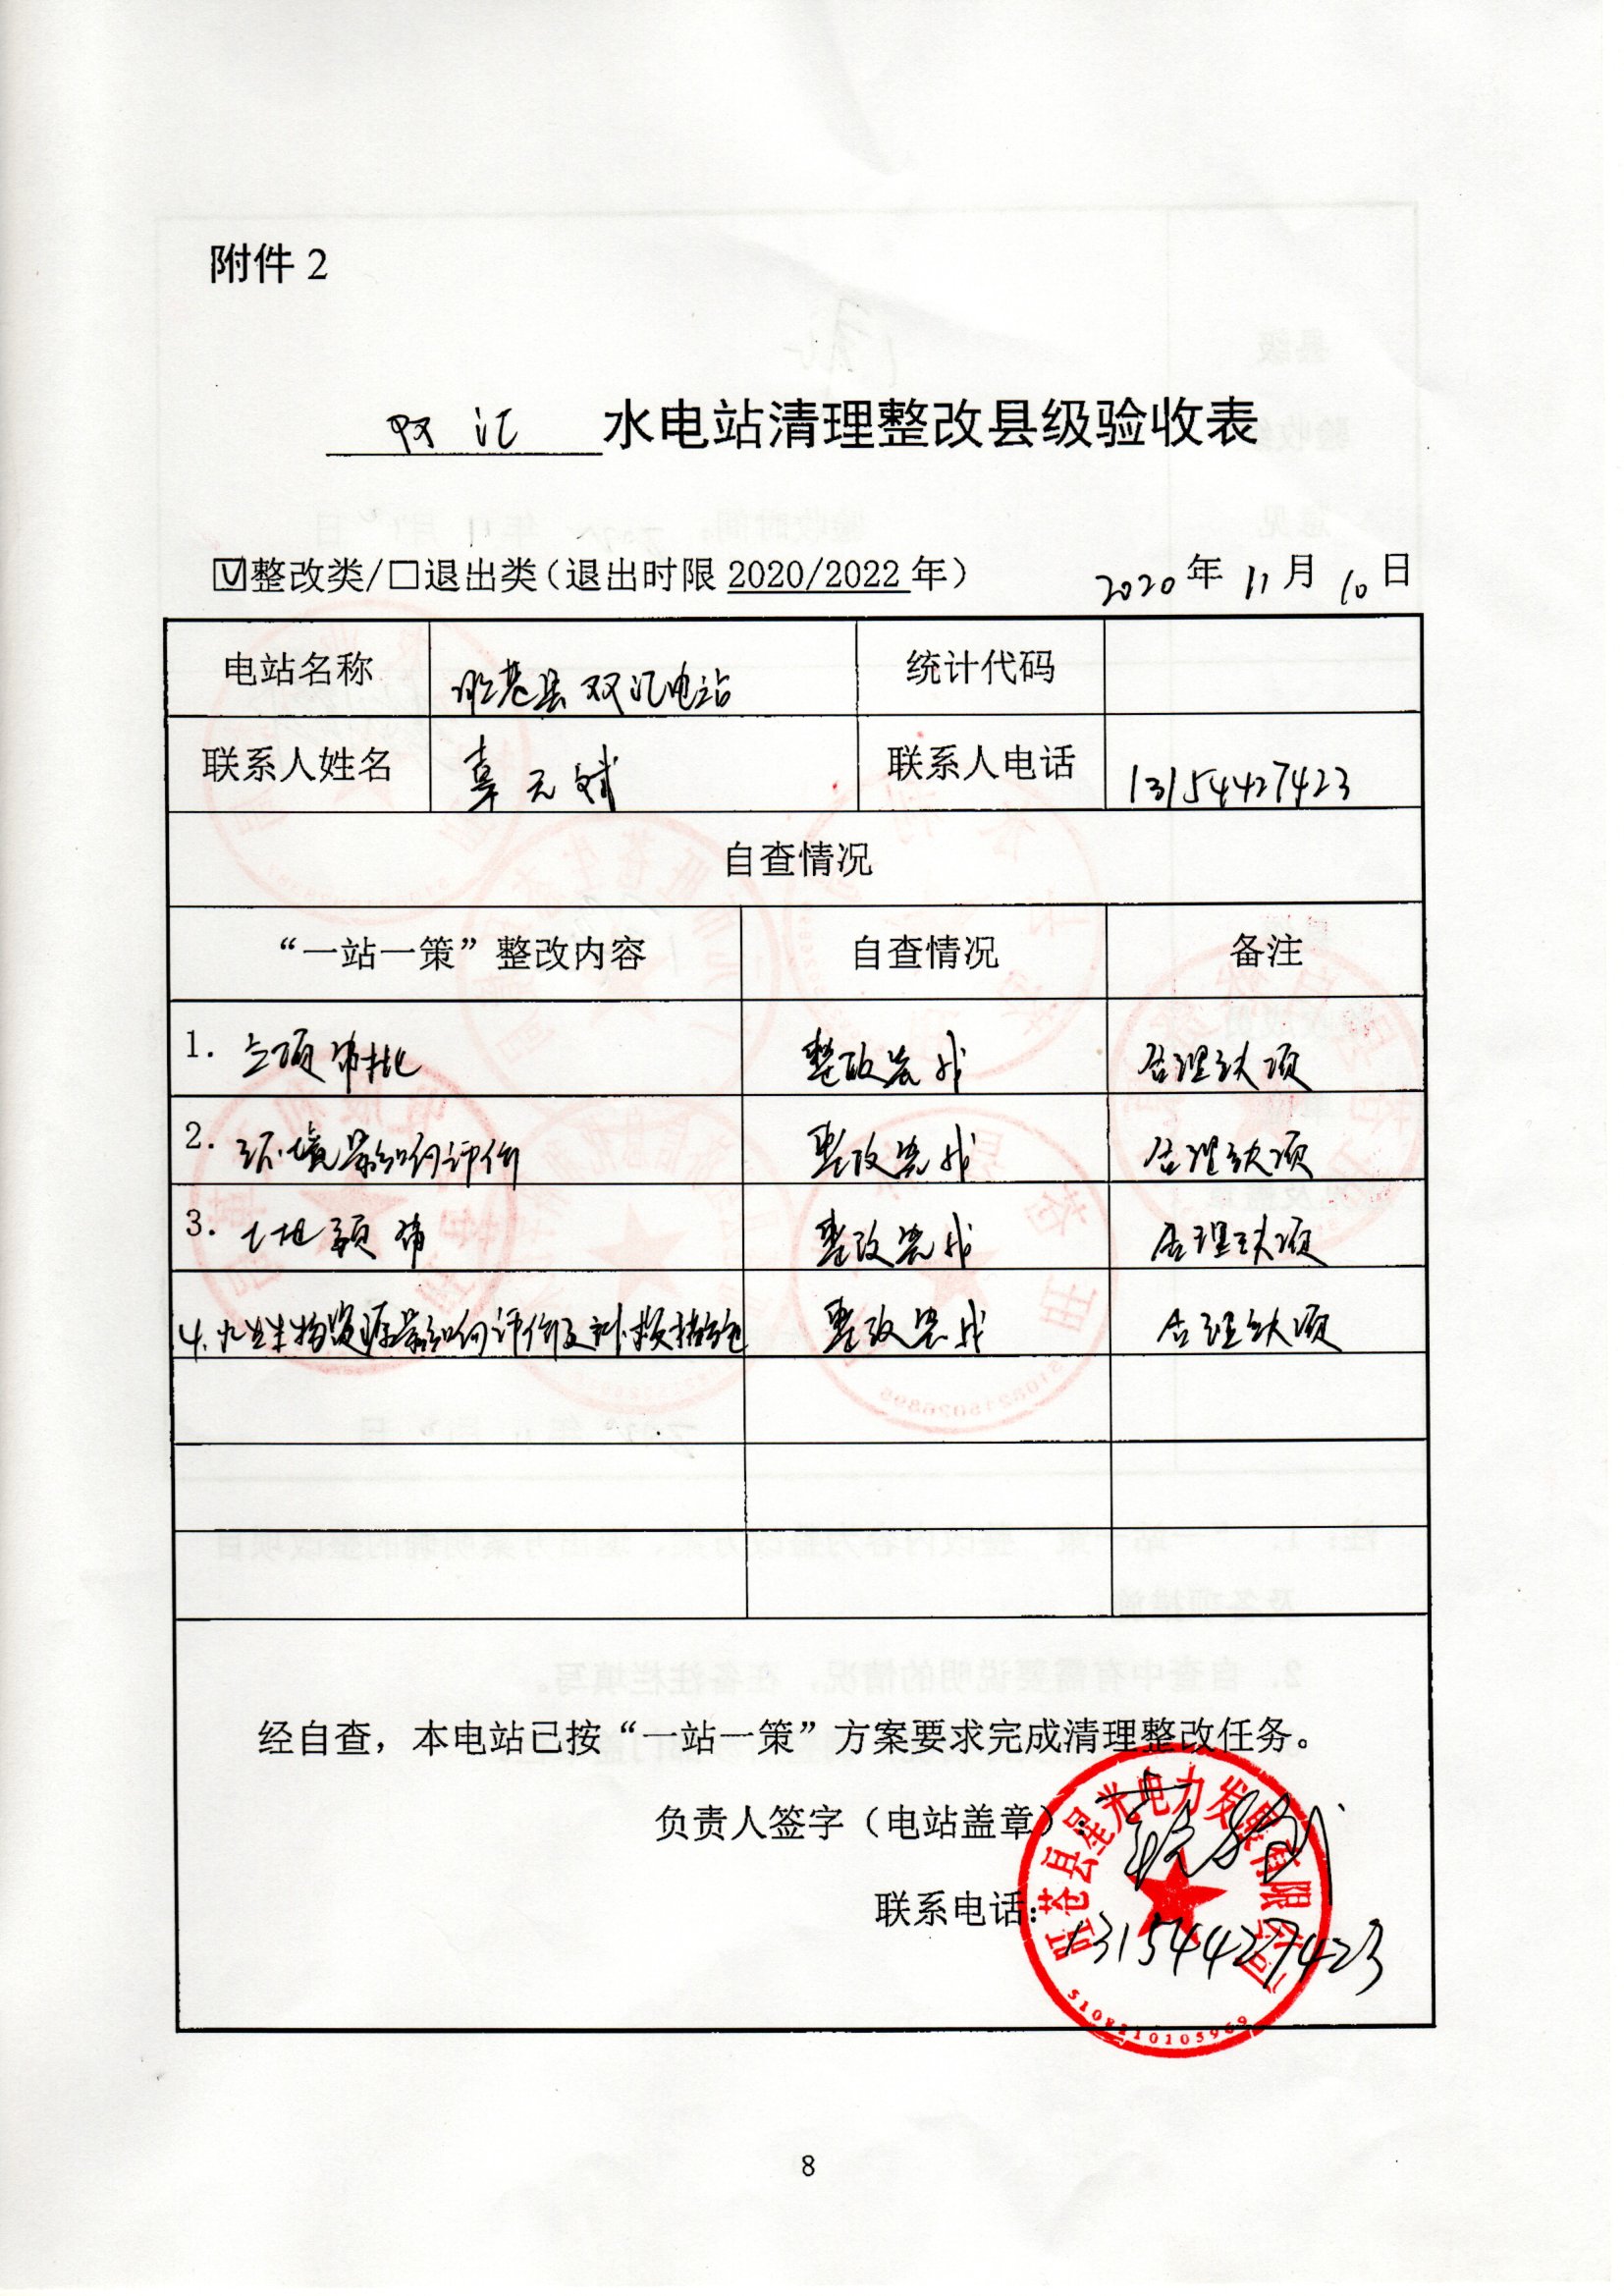 附件 2
双汇 水电站清理整改县级验收表
☑整改类/□退出类（退出时限 2020/2022 年） 2020 年 11 月 10 日
电站名称 旺苍县双汇电站 统计代码
联系人姓名 元斌 联系人电话 13154427423
自查情况
“一站一策”整改内容 自查情况 备注
1. 立项审批 整改完成 合理缺项
2. 环境影响评价 整改完成 合理缺项
3. 土地预审 整改完成 合理缺项
4. 水生生物资源影响评价及补救措施 整改完成 合理缺项
经自查，本电站已按“一站一策”方案要求完成清理整改任务。
负责人签字（电站盖章）：
联系电话：13154427423
旺苍县星光电力发展有限公司
5108210105969
8